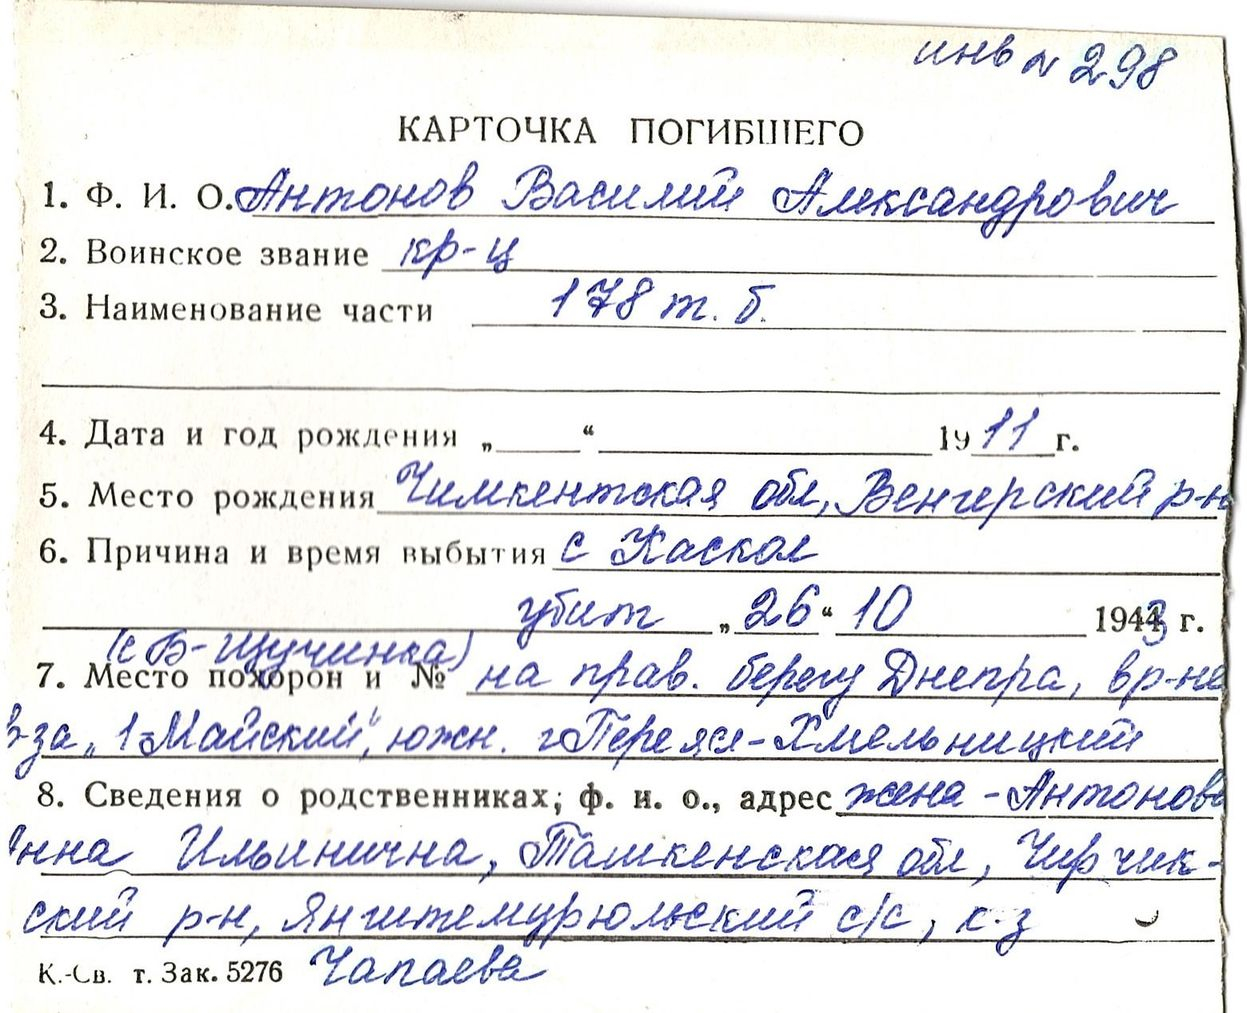 инв № 298
КАРТОЧКА ПОГИБШЕГО
1. Ф. И. О. Антонов Василий Александрович
2. Воинское звание кр-ц
3. Наименование части 178 т. б.
4. Дата и год рождения „ “ 1911 г.
5. Место рождения Чимкентская обл, Венгерский р-н
6. Причина и время выбытия с Каскол
убит „26“ 10 1943 г.
(с Б-Щучинка)
7. Место похорон и № на прав. берегу Днепра, в р-не
в-за „1-Майский“, южн. г Переяя-Хмельницкий
8. Сведения о родственниках; ф. и. о., адрес жена - Антонова
Анна Ильинична, Ташкенская обл, Чирчик-
ский р-н, с/с, к-з
К.-Св. т. Зак. 5276 Чапаева